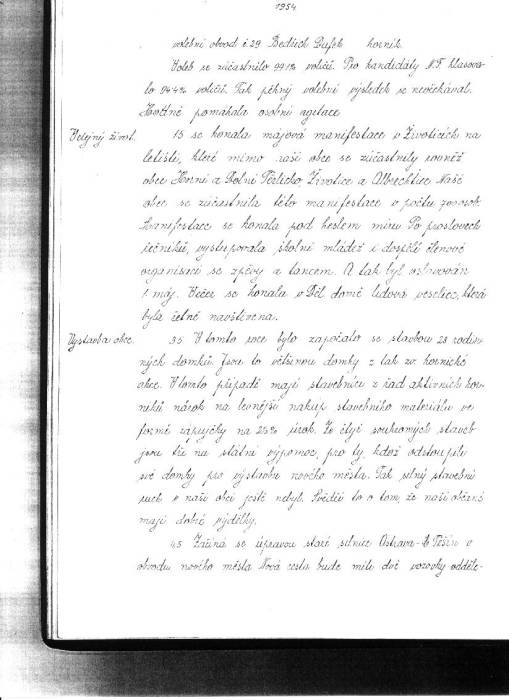 1954
volební obvod č. 29 Bedřich Dufek horník.
Voleb se zúčastnilo 99.1% voličů. Pro kandidáty N.F. hlasova-
lo 94.4% voličů. Tak pěkný volební výsledek se neočekával.
Hodně pomáhala osobní agitace
Veřejný život. 1.5 se konala májová manifestace v Životicích na
letišti, které mimo naší obce se zúčastnily rovněž
obce Horní a Dolní Těrlicko, Životice a Albrechtice Naše
obec se zúčastnila této manifestace v počtu osob.
Manifestace se konala pod heslem míru Po proslovech
řečníků, vystupovala školní mládež i dospělí členové
organisací se zpěvy a tancem. A tak byl oslavován
1 máj. Večer se konala v Děl. domě lidová veselice, která
byla četně navštívena.
Výstavba obce. 3.5. V tomto roce bylo započato se stavbou 28 rodin-
ných domků. Jsou to většinou domky z tak zv. hornické
akce. V tomto případě mají stavebníci z řad aktivních hor-
níků nárok na levnější nákup stavebního materiálu ve
formě zápůjčky na 2% úrok. Ze čtyř soukromých staveb
jsou tři na státní výpomoc, pro ty, kdož odstoupili
své domky pro výstavbu nového města. Tak silný stavební
ruch v naší obci ještě nebyl. Svědčí to o tom, že naši občané
mají dobré výdělky.
4.5 Začíná se úpravou staré silnice Ostrava-Č. Těšín v
obvodu nového města Nová cesta bude míti dvě vozovky odděle-